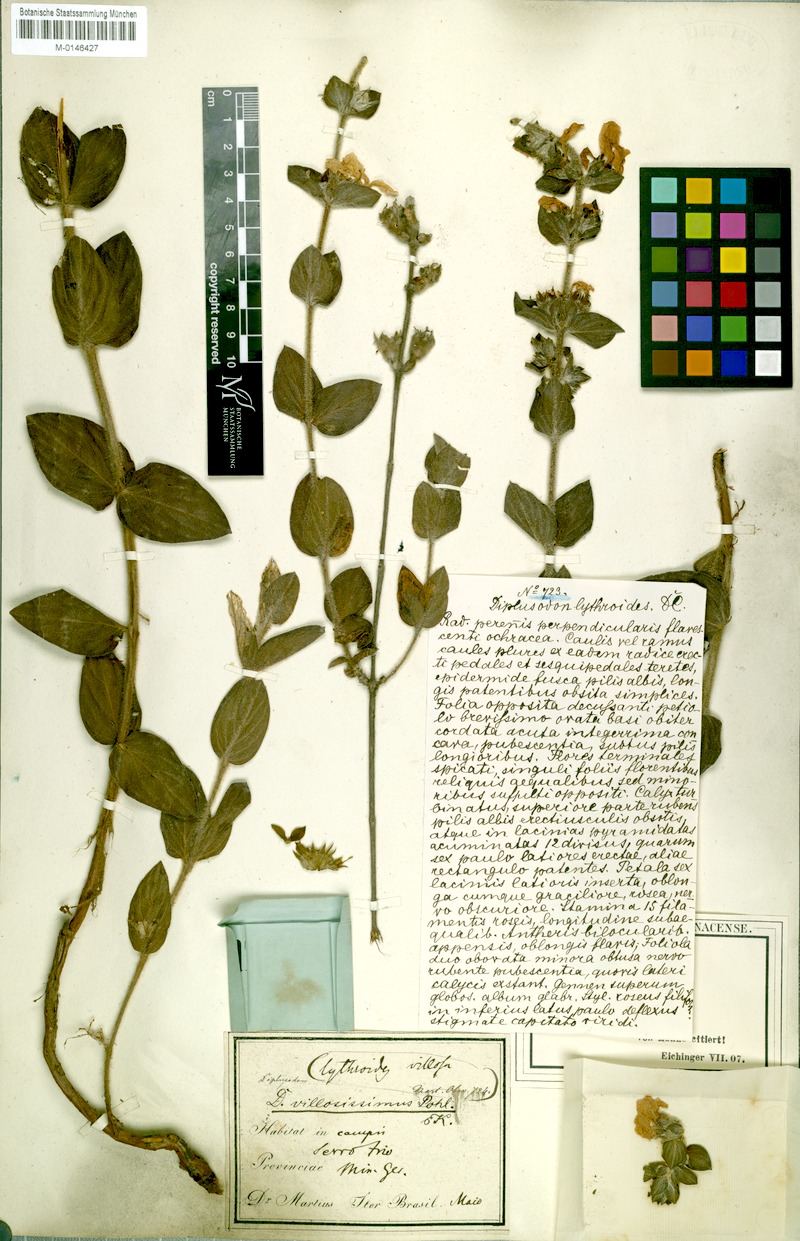 Botanische Staatssammlung München
M-0146427
cm 0 1 2 3 4 5 6 7 8 9 10
copyright reserved
BOTANISCHE
STAATSSAMMLUNG
MÜNCHEN
No 723.
Diplusodon lythroides. DC.
Rad. perenis perpendicularis flaves-
centi ochracea. Caulis vel ramus
caules plures ex eadem radice erec-
ti pedales et sesquipedales teretes,
epidermide fusca pilis albis, lon-
gis patentibus obsita simplices.
Folia opposita decussanti petio
lo brevissimo ovata basi obiter
cordata acuta integerrima con
cava, pubescentia, subtus pilis
longioribus. Flores terminales
spicati, singuli foliis florentibus
reliquis aequalibus, sed mino-
ribus suffulti oppositi. Calyx tur
binatus, superiore parte rubens
pilis albis erectiusculis obsitis,
atque in lacinias pyramidatas
acuminatas 12 divisus, quarum
sex paulo latiores erectae, aliae
rectangulo patentes. Petala sex
laciniis latioris inserta, oblon-
ga cumque graciliore, rosea, ner-
vo obscuriore. Stamina 15 fila-
mentis roseis, longitudine subae-
qualib. Antheris bilocularib.
appensis, oblongis flavis, Foliola
duo obovata minora obtusa nervo
rubente pubescentia, quovis lateri
calycis exstant. Germen superum
globos. album glabr. Styl. roseus filifor
in inferius latus paulo deflexus
stigmate capitato viridi.
NACENSE.
Eichinger VII. 07.
Lythroides villosa
Diplusodon
Mart. Obs. 724.
D. villosissimus Pohl.
Habitat in campis
Serro frio
Provinciae Min. Ges.
Dr Martius Iter Brasil. Maio